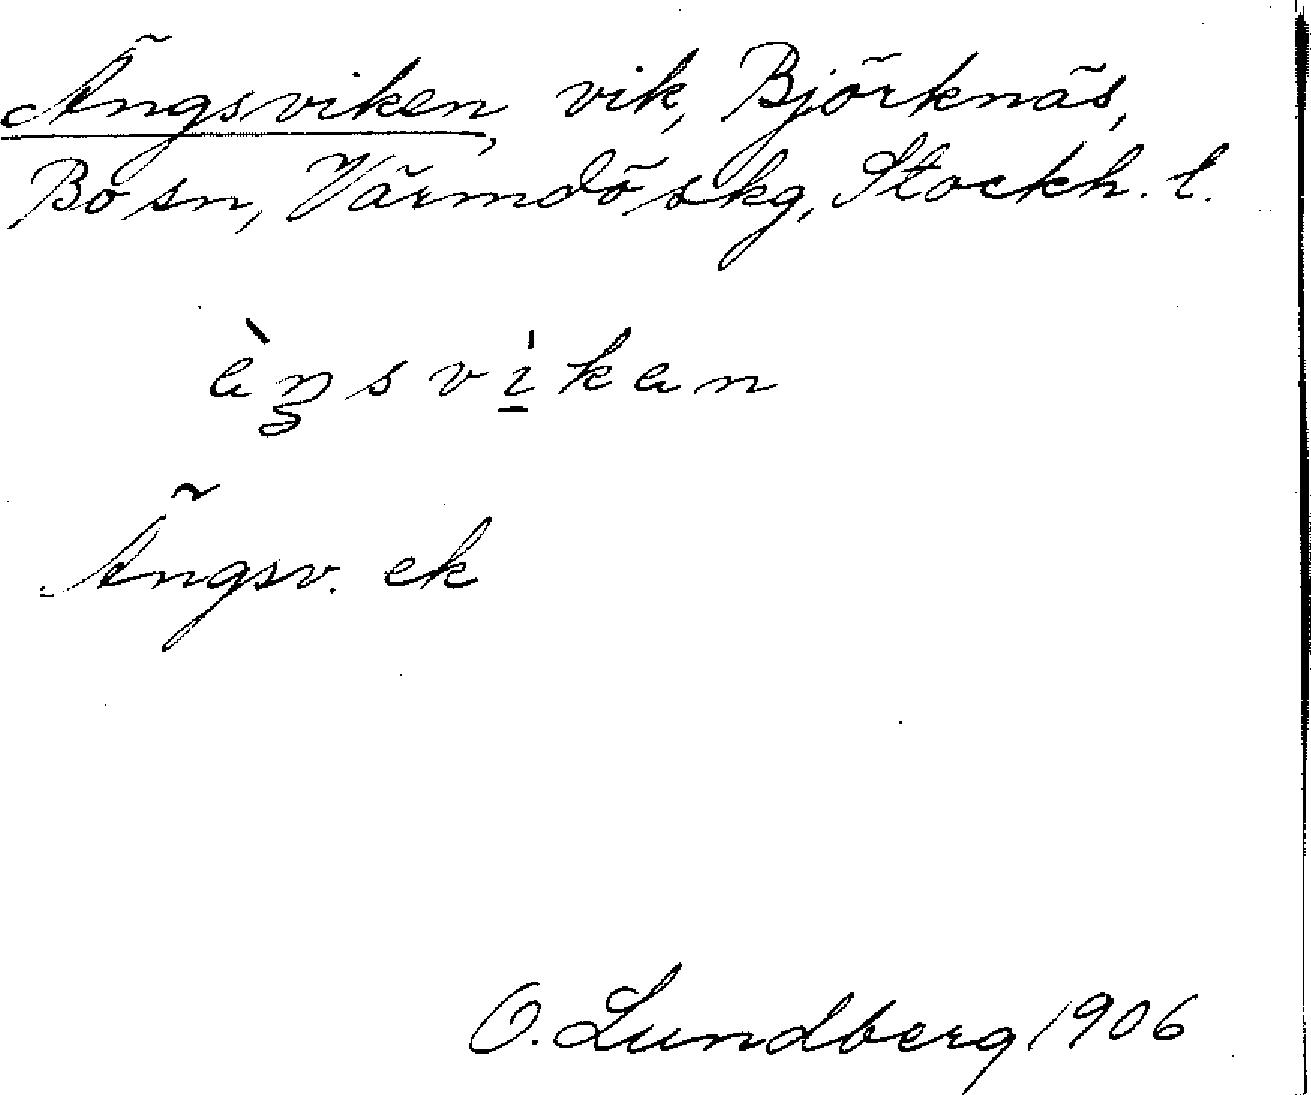 Ängsviken, vik, Björknäs,
Bo sn, Värmdö skg, Stockh. l.
Ängsv. ek
O. Lundberg 1906